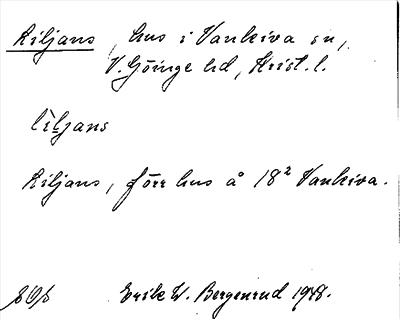 Liljans, hus i Vankiva sn,
V. Göinge hd, Krist. l.
lìljans
Liljans, förr hus å 18² Vankiva.
Erik W. Bergenrud 1948.